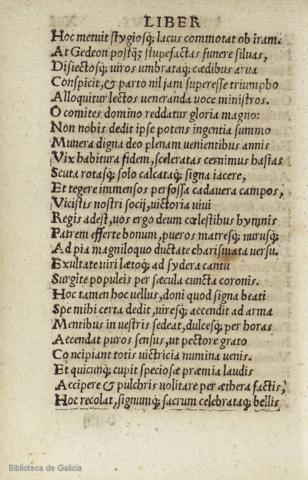 LIBER
Hoc metuit stygiosq; lacus commotat ob iram.
At Gedeon postq̃; stupefactas funere siluas,
Disiectosq; uiros umbrataq; cædibus arua
Conspicit, & parto nil jam superesse triumpho
Alloquitur lectos ueneranda uoce ministros.
O comites domino reddatur gloria magno:
Non nobis dedit ipse potens ingentia summo
Munera digna deo plenam uenientibus annis
Vix habitura fidem, sceleratas cernimus hastas
Scuta rotasq; solo calcataq; signa iacere,
Et tegere immensos perfossa cadauera campos,
Vicistis nostri socij, uictoria uiui
Regis adest, uos ergo deum cœlestibus hymnis
Patrem efferte bonum, pueros matresq; nurusq;
Ad pia magniloquo ductate charismata uersu.
Exultate uiri lætoq; ad sydera cantu
Surgite populeis per sæcula cuncta coronis.
Hoc tamen hoc uellus, doni quod signa beati
Spe mihi certa dedit, uiresq; accendit ad arma
Mentibus in uestris sedeat, dulcesq; per horas
Accendat puros sensus, ut pectore grato
Concipiant totis uictricia numina uenis.
Et quicunq; cupit speciosæ præmia laudis
Accipere & pulchris uolitare per æthera factis,
Hoc recolat, signumq; sacrum celebrataq; bellis
Biblioteca de Galicia